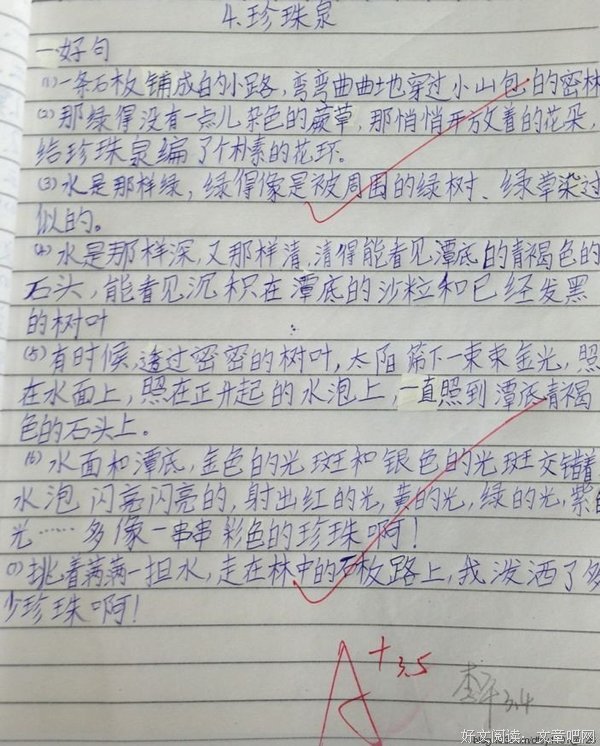 4.珍珠泉
一好句
(1)一条石板铺成的小路,弯弯曲曲地穿过小山包的密林
(2)那绿得没有一点儿杂色的蕨草,那悄悄开放着的花朵,
给珍珠泉编了个朴素的花环。
(3)水是那样绿,绿得像是被周围的绿树、绿草染过
似的。
(4)水是那样深,又那样清,清得能看见潭底的青褐色的
石头,能看见沉积在潭底的沙粒和已经发黑
的树叶
(5)有时候,透过密密的树叶,太阳筛下一束束金光,照
在水面上,照在正升起的水泡上,一直照到潭底青褐
色的石头上。
(6)水面和潭底,金色的光斑和银色的光斑交错着
水泡闪亮闪亮的,射出红的光,黄的光,绿的光,紫的
光……多像一串串彩色的珍珠啊!
(7)挑着满满一担水,走在林中的石板路上,我泼洒了多
少珍珠啊!
A+ 3.5
3.4
好文阅读:文章吧网